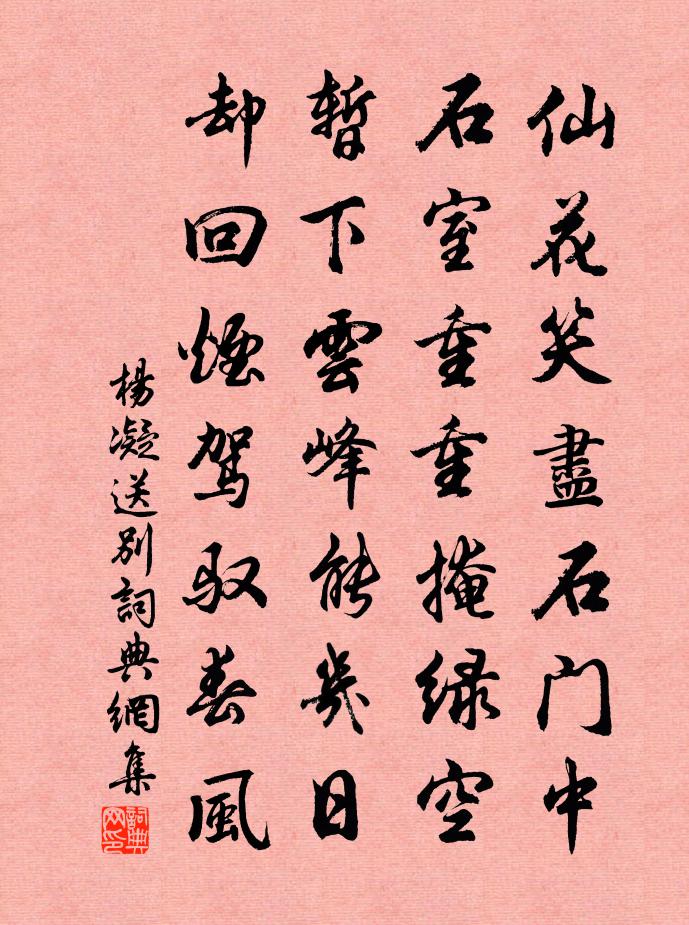 仙花笑盡石门中
石室重重掩绿空
暫下雲峰能幾日
却回煙駕馭春風
楊凝送别詞典網集
詞典网印